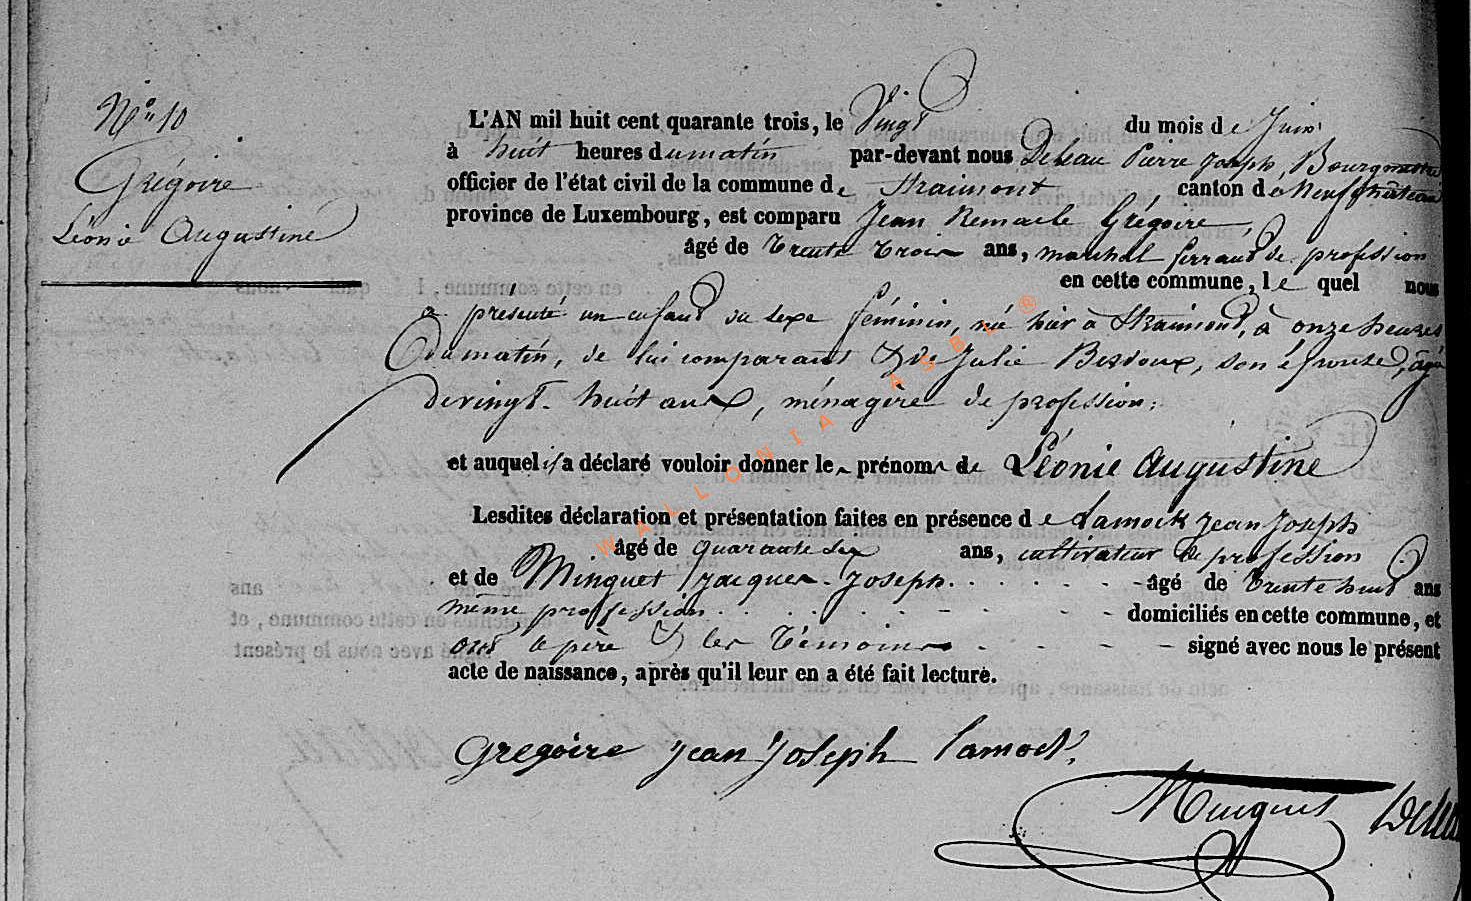 N° 10
Grégoire
Léonie Augustine
L'AN mil huit cent quarante trois, le Vingt du mois de Juin
à huit heures du matin par-devant nous Deleau Pierre Joseph, Bourgmestre
officier de l'état civil de la commune de Straimont canton de Neufchâteau
province de Luxembourg, est comparu Jean Remacle Grégoire,
âgé de trente trois ans, maréchal ferrand de profession
en cette commune, le quel nous
a présenté un enfant du sexe féminin, né hier à Straimont, à onze heures
du matin, de lui comparant & de Julie, son épouse, âgée
de vingt-huit ans, ménagère de profession;
et auquel il a déclaré vouloir donner les prénoms de Léonie Augustine
Lesdites déclaration et présentation faites en présence de Lamock Jean Joseph
âgé de quarante six ans, cultivateur de profession
et de Minguet Jacques-Joseph âgé de trente huit ans
même profession domiciliés en cette commune, et
ont le père & les témoins signé avec nous le présent
acte de naissance, après qu'il leur en a été fait lecture.
Gregoire Jean Joseph Lamock
Minguet
WALLONIA ASBL ®